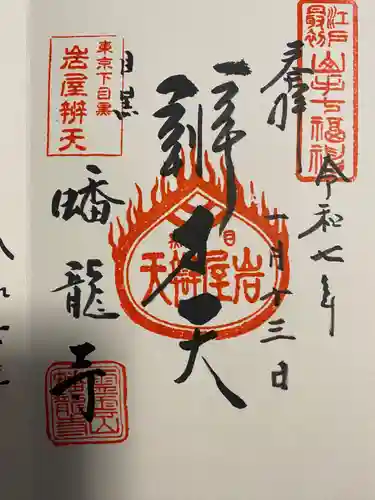 江戸最初
山手七福神
奉拝
令和七年
十月十三日
辨才天
目黒
岩屋辨天
東京下目黒
岩屋辨天
目黒
蟠龍寺
霊雲山
蟠龍寺